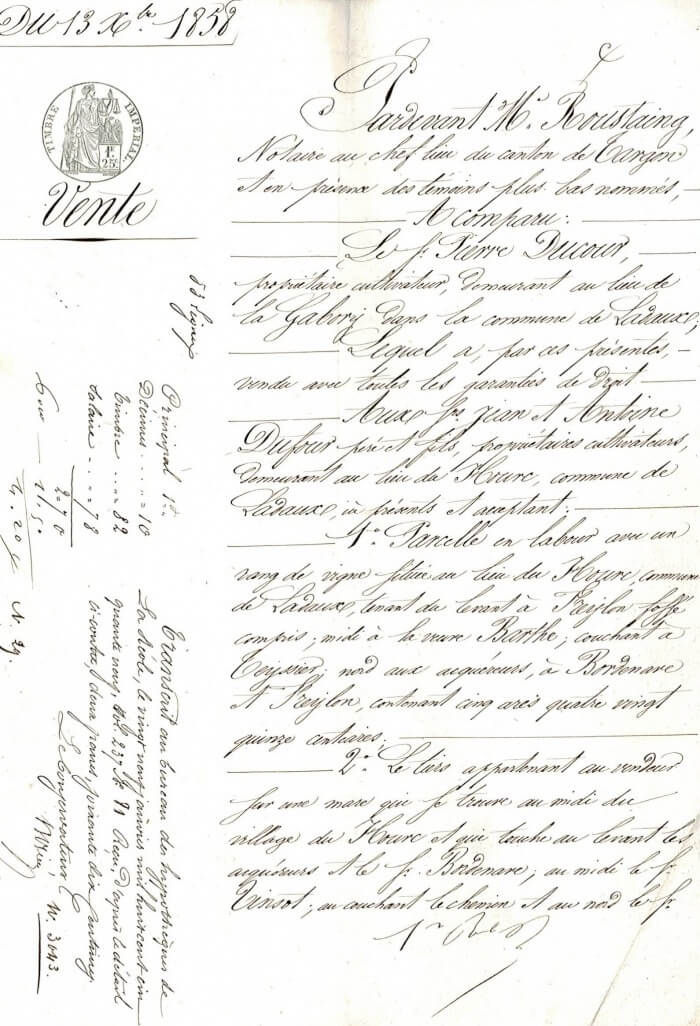 Du 13 Xbre 1858
TIMBRE IMPÉRIAL
1f. 25c.
Vente
Pardevant Me. Roustaing
Notaire au chef lieu du canton de Targon
et en présence des témoins plus bas nommés,
A comparu:
Le sr. Pierre Ducour,
propriétaire cultivateur, demeurant au lieu de
la Gabory dans la commune de Ladaux;
Lequel a, par ces présentes,
vendu avec toutes les garanties de droit
Aux srs. Jean et Antoine
Dufour père et fils, propriétaires cultivateurs,
demeurant au lieu du Hourc, commune de
Ladaux, ici présents et acceptant:
1o. Parcelle en labour avec un
rang de vigne située au lieu du Hourc, commune
de Ladaux, tenant du levant à Freylon fossé
compris; midi à la veuve Barthe; couchant à
Teyssier; nord aux acquéreurs, à Bordenave
et Freylon, contenant cinq ares quatre vingt
quinze centiares.
2o. Le tiers appartenant au vendeur
sur une mare qui se trouve au midi du
village du Hourc et qui touche au levant les
acquéreurs et le sr. Bordenave; au midi le sr.
Vinsot; au couchant le chemin et au nord le sr.
Principal 1
Décimes .... 10
Timbre .... 82
Salaire .... 78
2=70
4.20
N. 29
Transcrit au bureau des hypothèques de
La Réole, le vingt neuf janvier mil huit cent cin
quante neuf, vol. 237 No. 71 Reçu d'après le détail
ci contre, deux francs, soixante dix centimes
Le Conservateur
N. 3043.